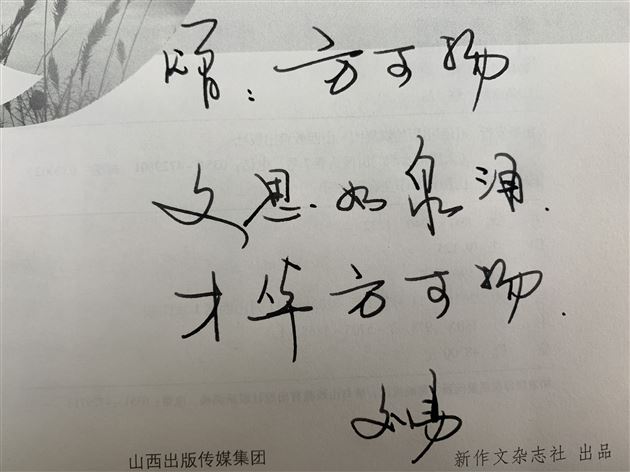 赠：方可扬
文思如泉涌.
才华方可扬.
山西出版传媒集团 新作文杂志社 出品